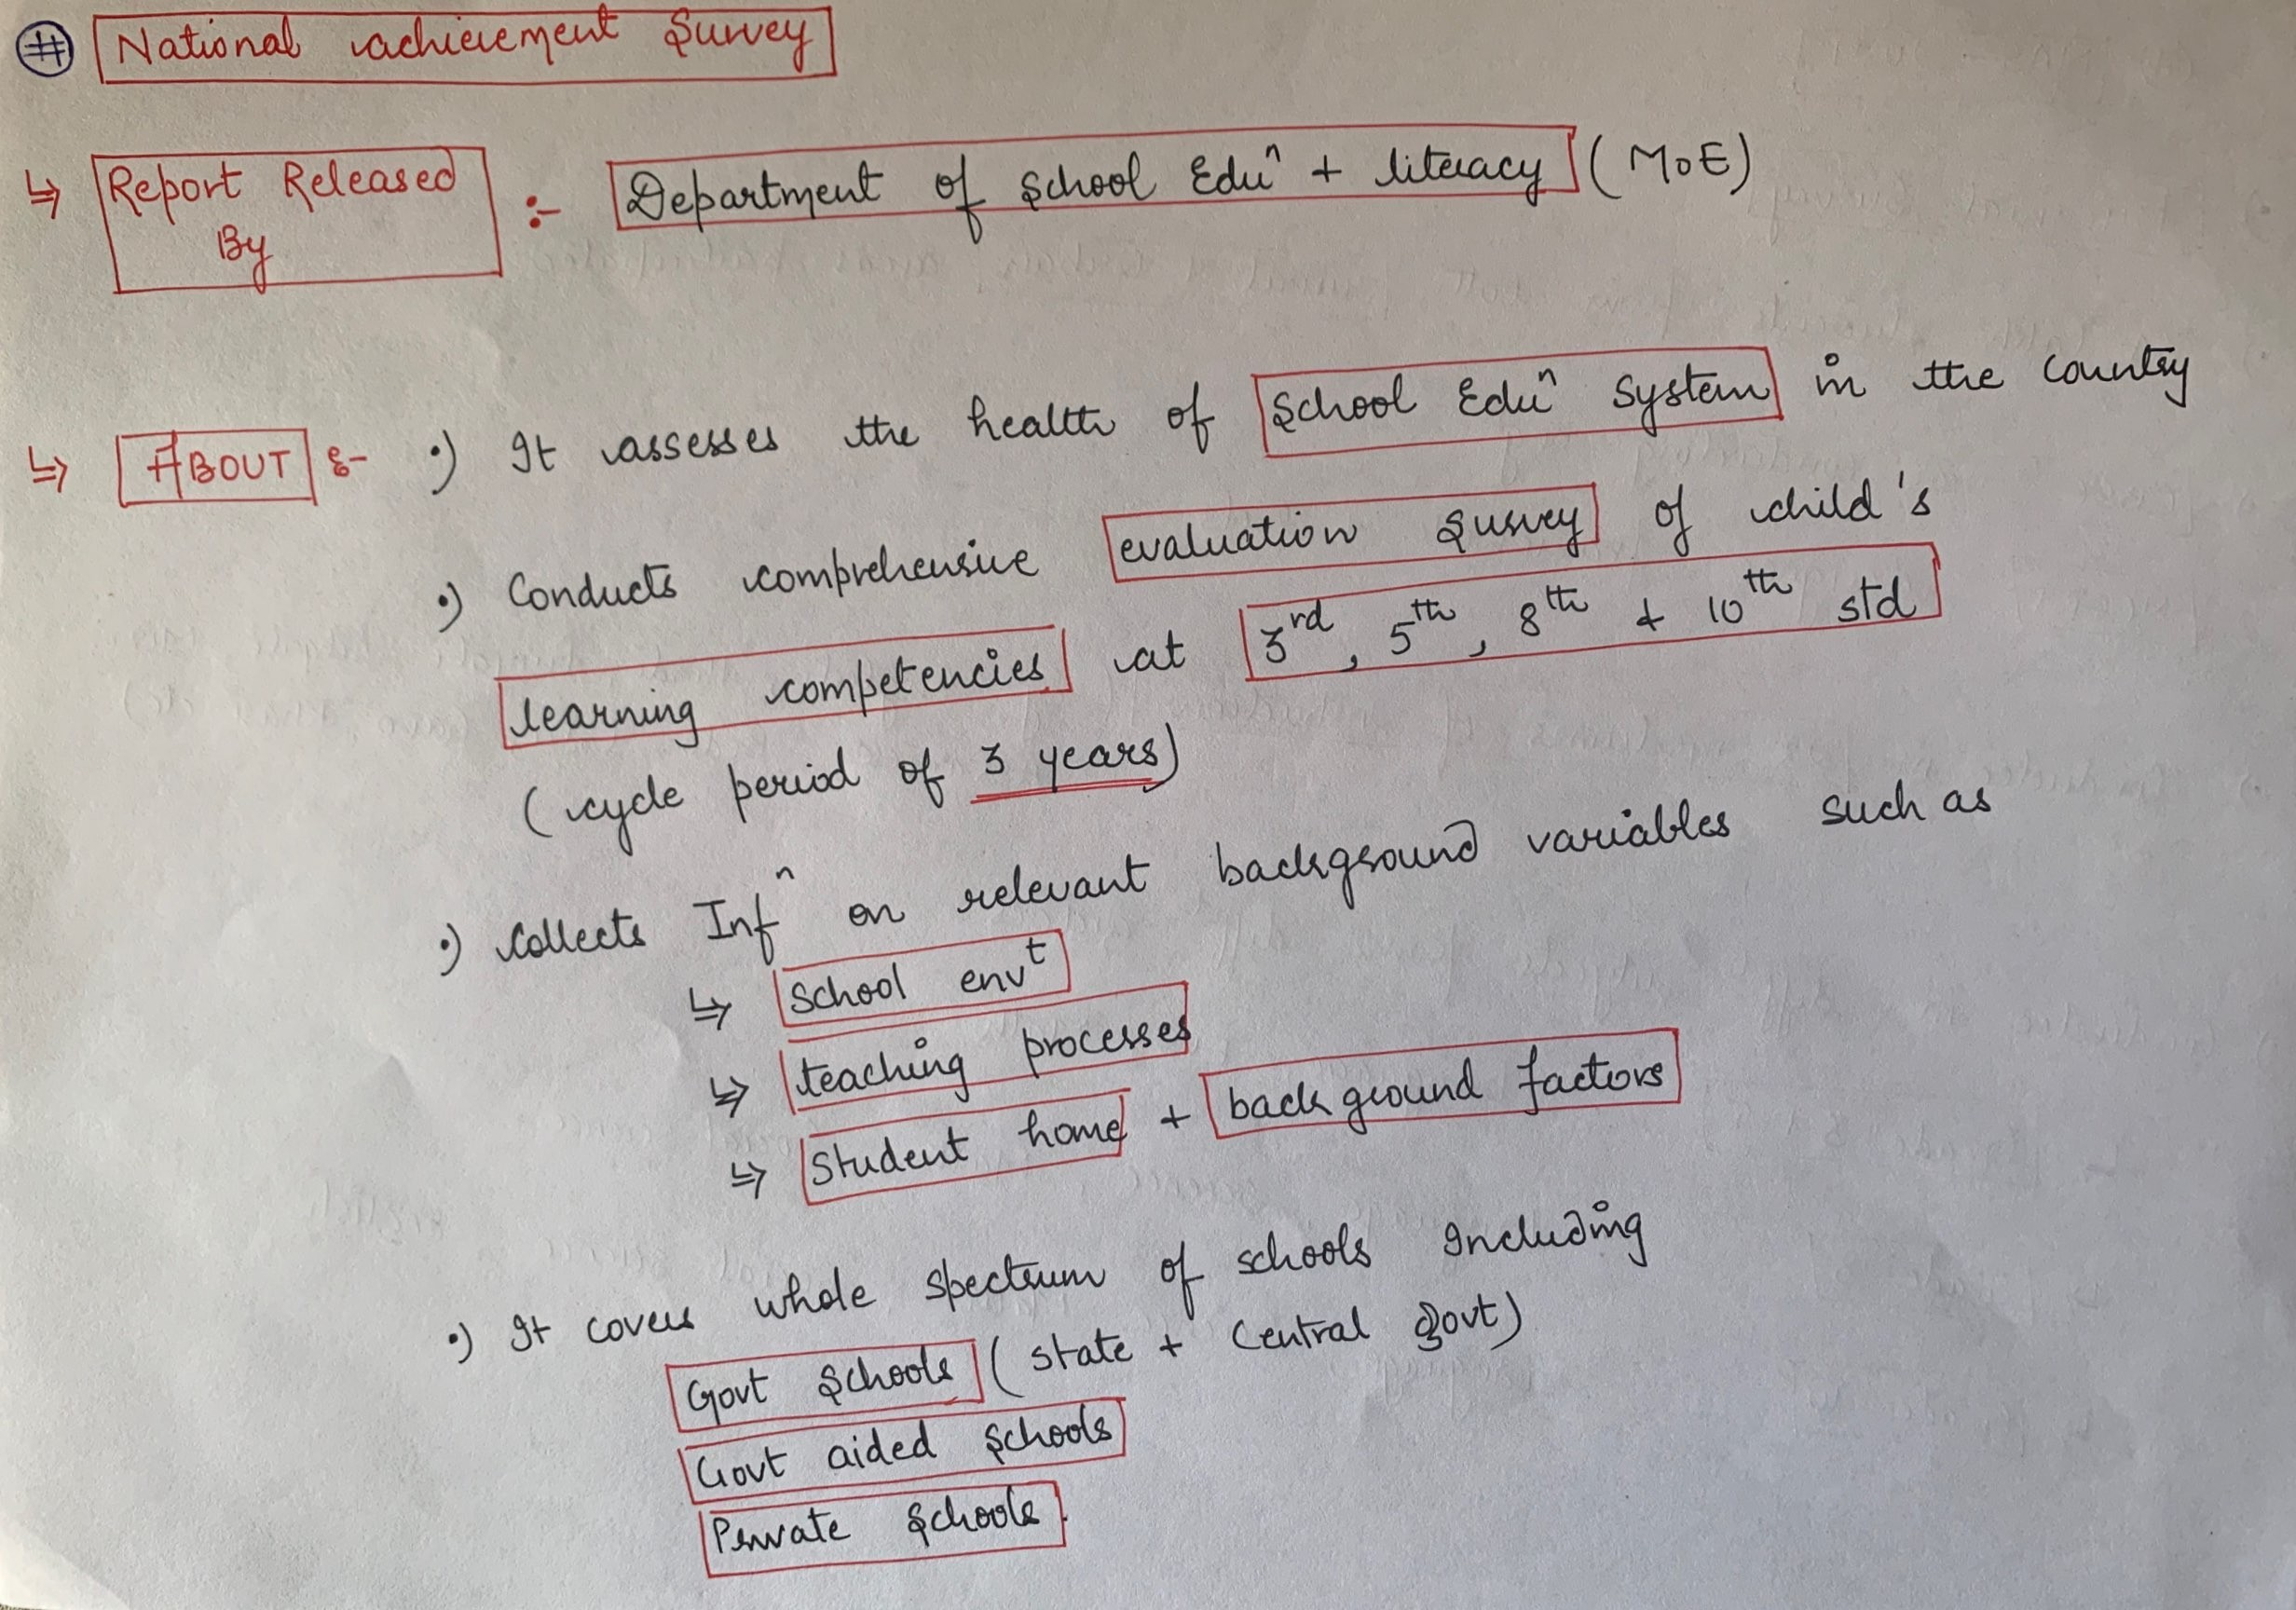 # National achievement Survey
↳ Report Released By :- Department of School Eduⁿ + literacy (MoE)
↳ ABOUT :- •) It assesses the health of School Eduⁿ System in the country
•) Conducts comprehensive evaluation survey of child's
learning competencies at 3rd, 5th, 8th + 10th std
(cycle period of 3 years)
•) Collects Infⁿ on relevant background variables such as
↳ School envt
↳ teaching processes
↳ Student home + background factors
•) It covers whole spectrum of schools Including
Govt Schools (state + Central govt)
Govt aided Schools
Private Schools.